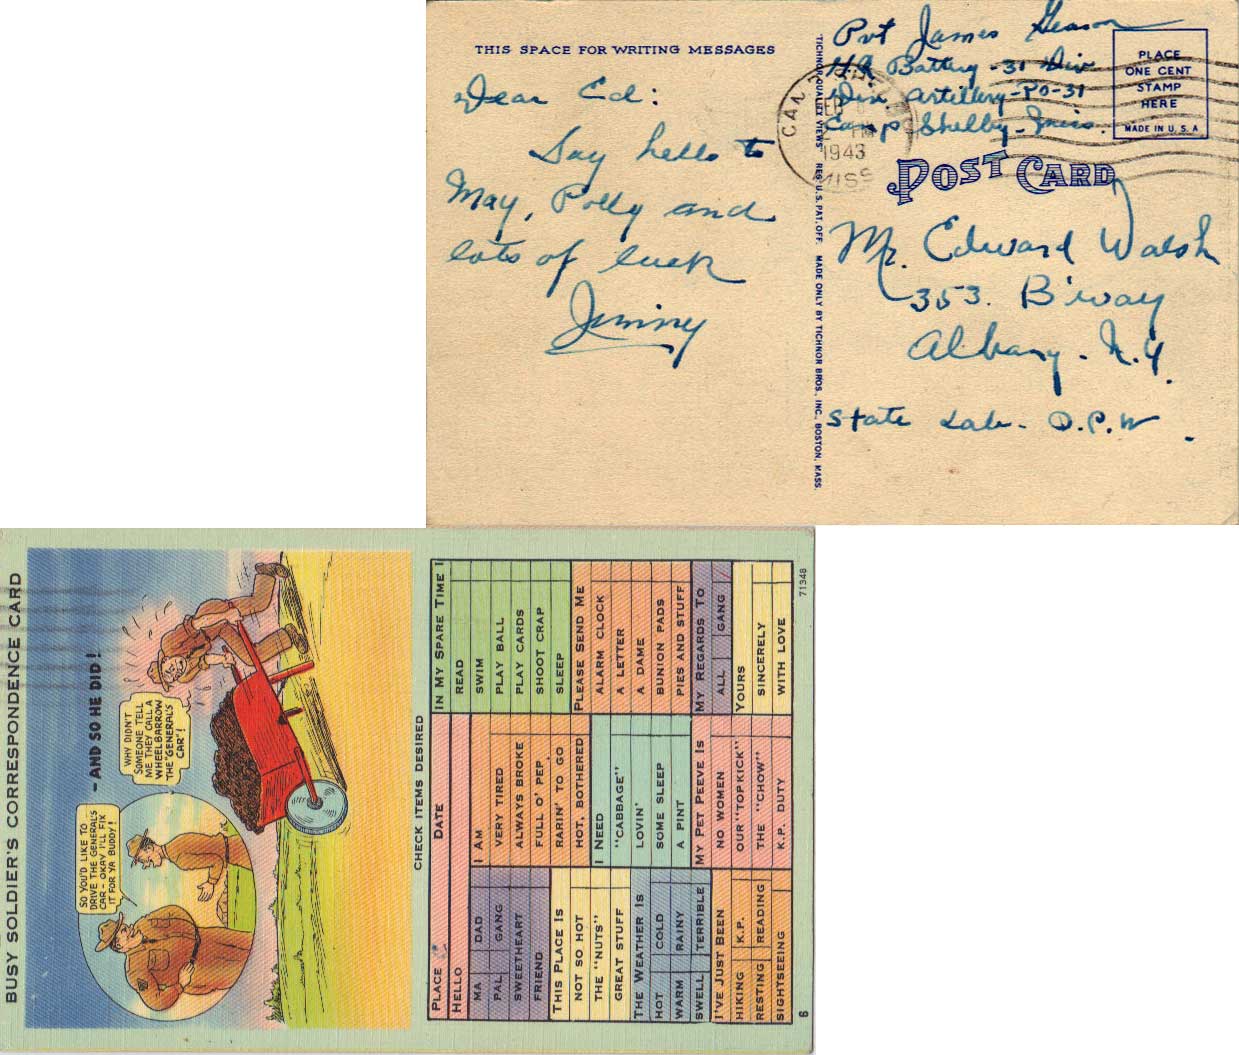 THIS SPACE FOR WRITING MESSAGES
Dear Ed:
Say hello to
May, Polly and
lots of luck
Jimmy
TICHNOR QUALITY VIEWS REG. U.S. PAT. OFF. MADE ONLY BY TICHNOR BROS., INC., BOSTON, MASS.
Pvt James Geason
HQ Battery - 31 Div
Div Artillery - PO - 31
Camp Shelby - Miss.
1943
MISS
PLACE
ONE CENT
STAMP
HERE
MADE IN U.S.A
POST CARD
Mr. Edward Walsh
353. B'way
Albany - N.Y.
State Lab - D.P.W.
BUSY SOLDIER'S CORRESPONDENCE CARD
- AND SO HE DID!
SO YOU'D LIKE TO
DRIVE THE GENERAL'S
CAR - OKAY I'LL FIX
IT FOR YA BUDDY!
WHY DIDN'T
SOMEONE TELL
ME THEY CALL A
WHEELBARROW
THE "GENERAL'S
CAR"!
CHECK ITEMS DESIRED
PLACE DATE
HELLO
MA DAD
PAL GANG
SWEETHEART
FRIEND
THIS PLACE IS
NOT SO HOT
THE "NUTS"
GREAT STUFF
THE WEATHER IS
HOT COLD
WARM RAINY
SWELL TERRIBLE
I'VE JUST BEEN
HIKING K.P.
RESTING READING
SIGHTSEEING
I AM
VERY TIRED
ALWAYS BROKE
FULL O' PEP
RARIN' TO GO
HOT, BOTHERED
I NEED
"CABBAGE"
LOVIN'
SOME SLEEP
A PINT
MY PET PEEVE IS
NO WOMEN
OUR "TOPKICK"
THE "CHOW"
K.P. DUTY
IN MY SPARE TIME I
READ
SWIM
PLAY BALL
PLAY CARDS
SHOOT CRAP
SLEEP
PLEASE SEND ME
ALARM CLOCK
A LETTER
A DAME
BUNION PADS
PIES AND STUFF
MY REGARDS TO
ALL GANG
YOURS
SINCERELY
WITH LOVE
6
71348